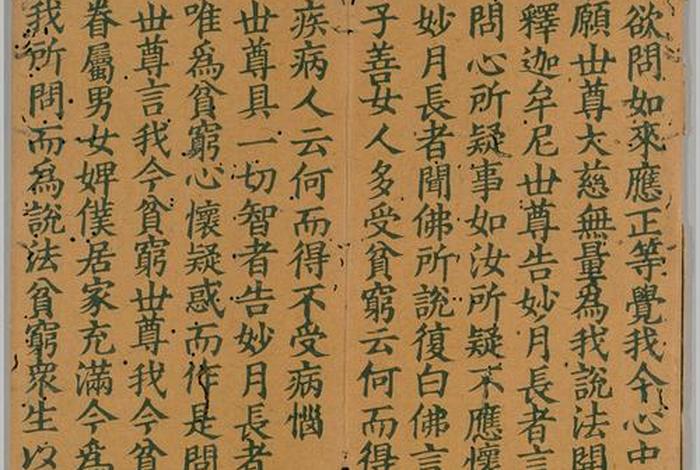 欲問如來應正等覺我今心中
願世尊大慈無量為我說法開
釋迦牟尼世尊告妙月長者言
問心所疑事如汝所疑不應懷
妙月長者聞佛所說復白佛言
子善女人多受貧窮云何而得
疾病人云何而得不受病惱
世尊具一切智者告妙月長者
唯為貧窮心懷疑惑而作是問
世尊言我今貧窮世尊我今貧
眷屬男女婢僕居家充滿今為
我所問而為說法貧窮眾生以